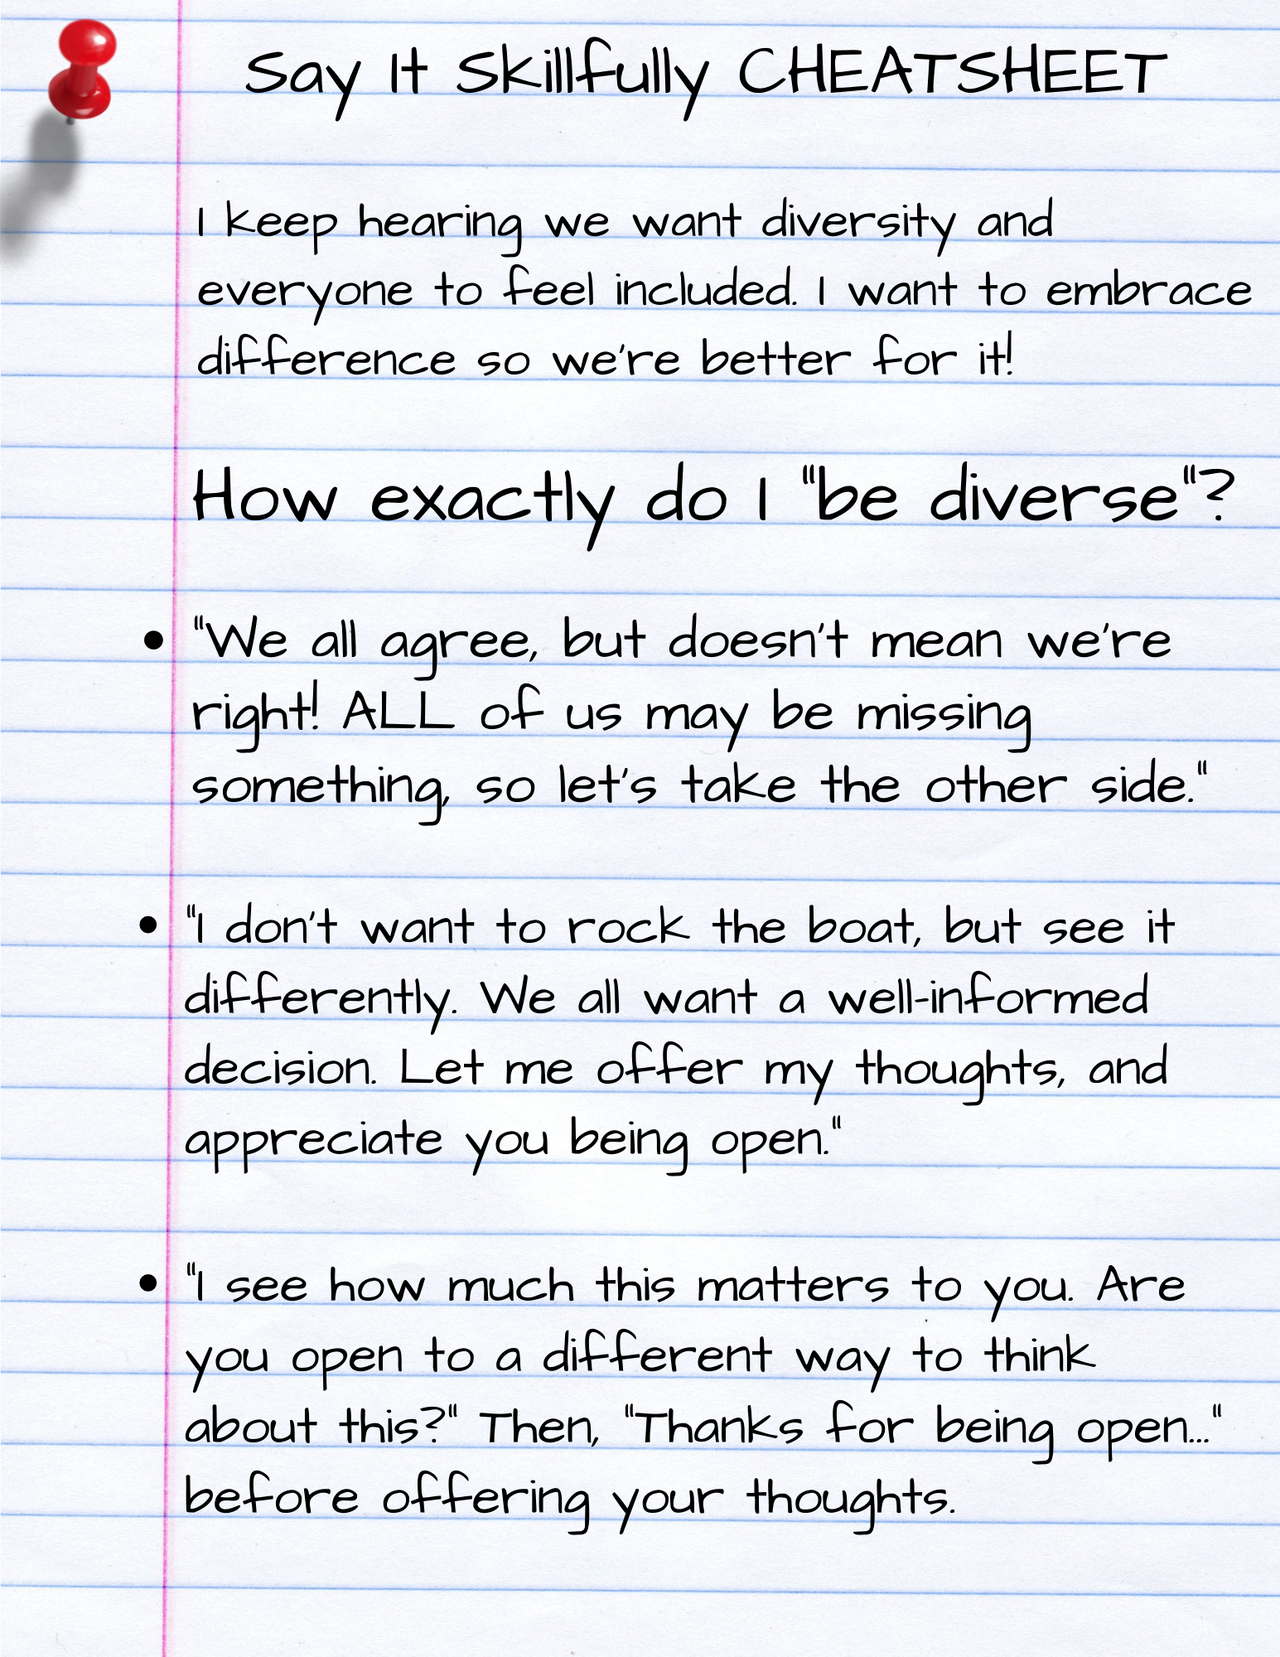 Say It Skillfully CHEATSHEET
I keep hearing we want diversity and
everyone to feel included. I want to embrace
difference so we're better for it!
How exactly do I "be diverse"?
• "We all agree, but doesn't mean we're
right! ALL of us may be missing
something, so let's take the other side."
• "I don't want to rock the boat, but see it
differently. We all want a well-informed
decision. Let me offer my thoughts, and
appreciate you being open."
• "I see how much this matters to you. Are
you open to a different way to think
about this?" Then, "Thanks for being open..."
before offering your thoughts.